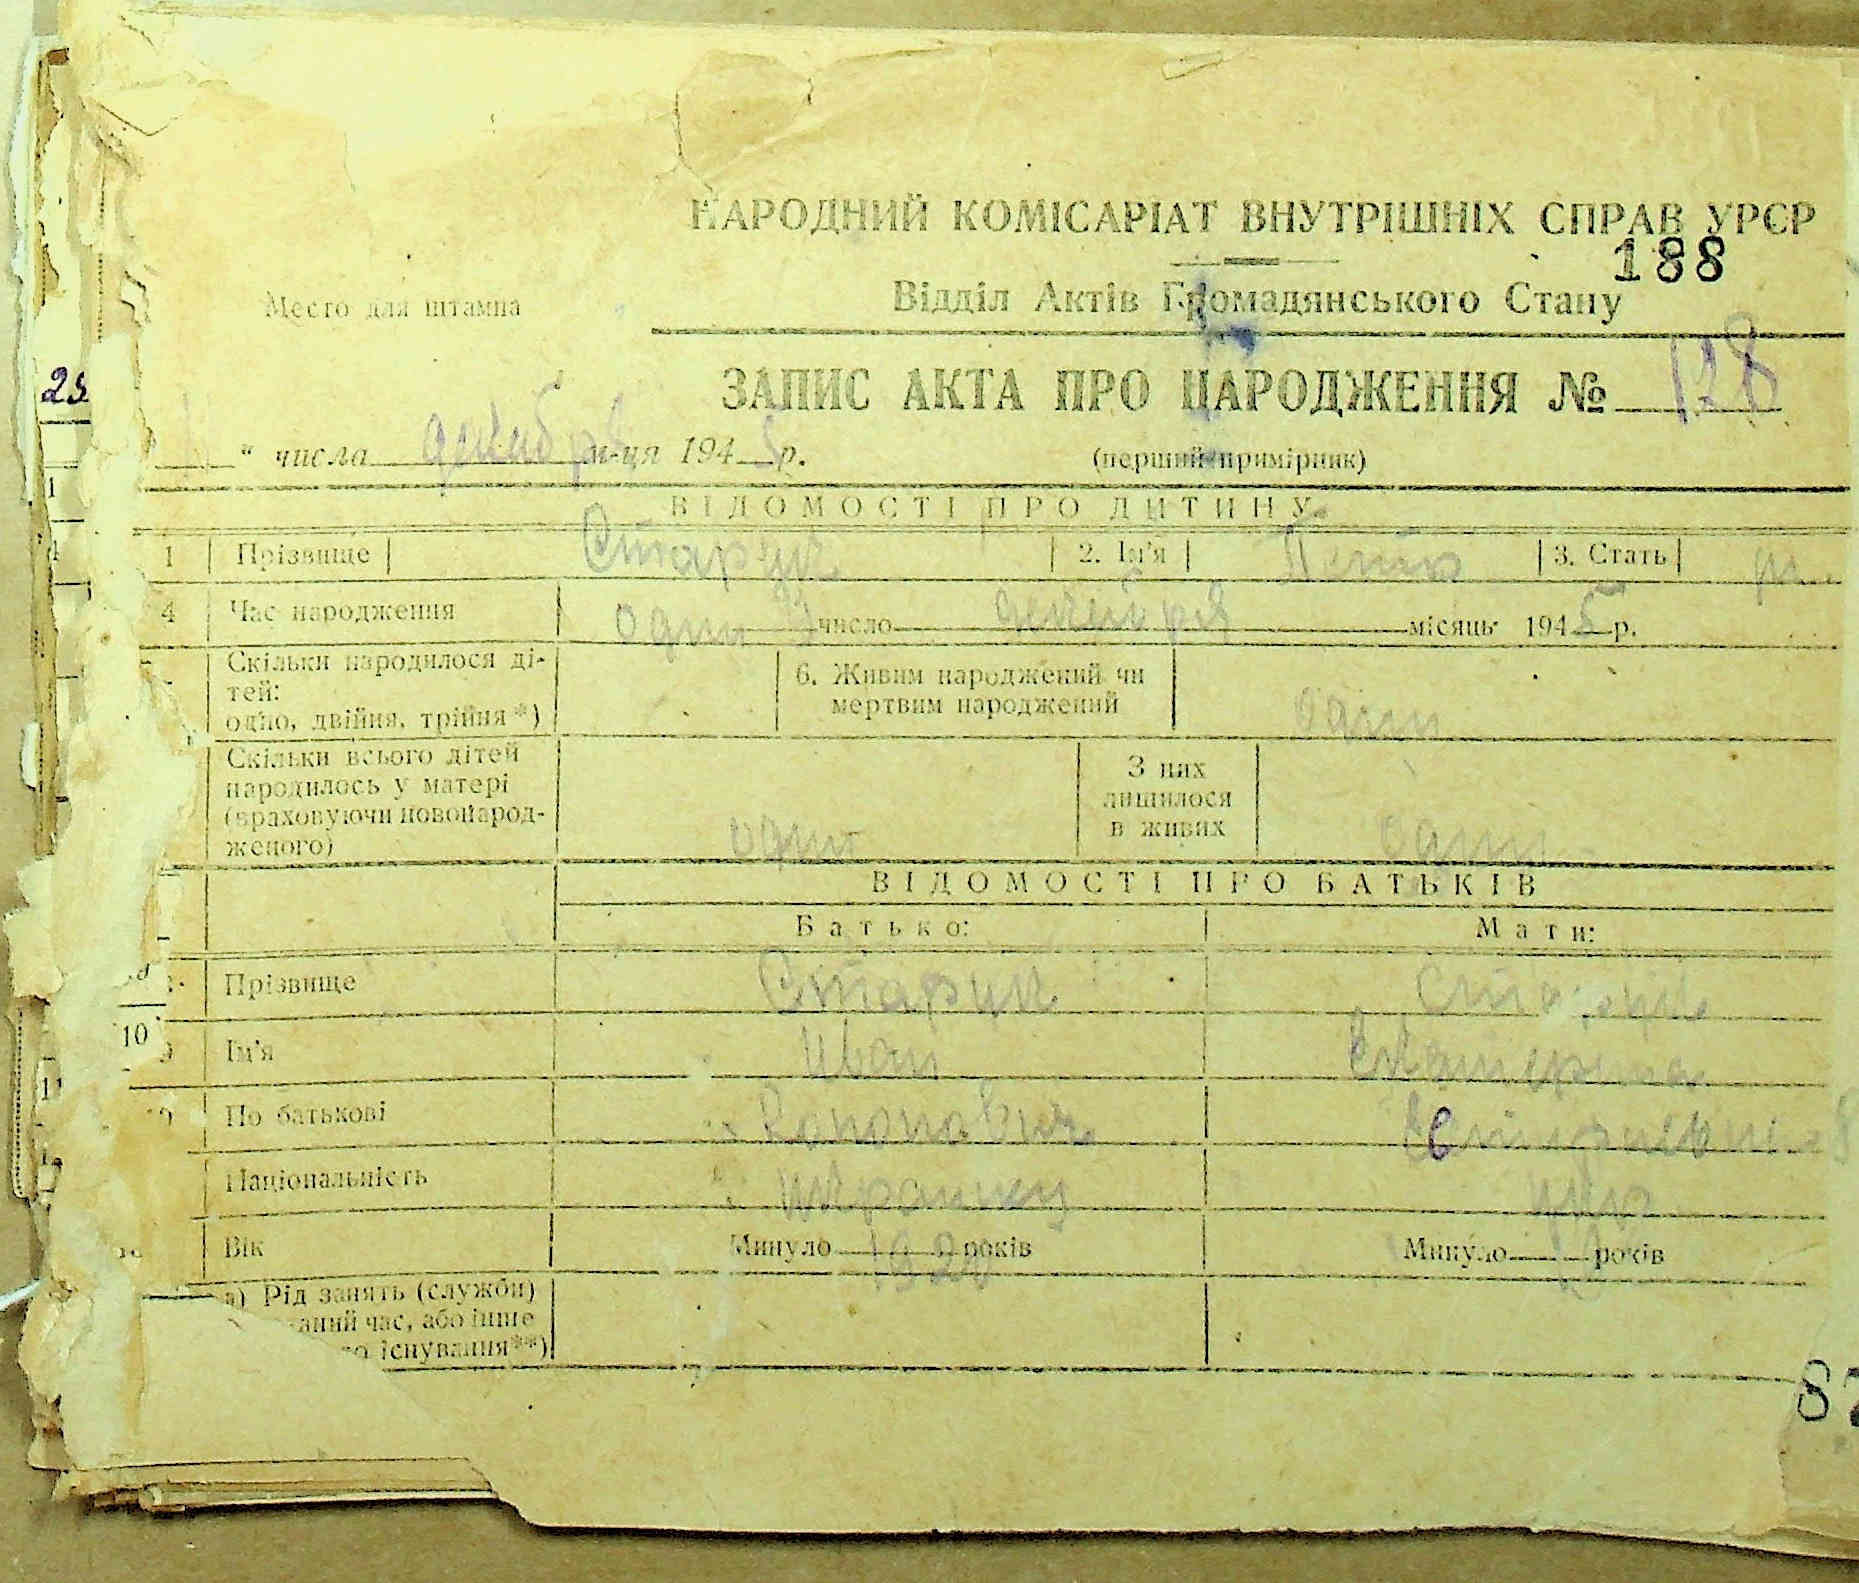 НАРОДНИЙ КОМІСАРІАТ ВНУТРІШНІХ СПРАВ УРСР
188
Место для штампа
Відділ Актів Громадянського Стану
25
ЗАПИС АКТА ПРО НАРОДЖЕННЯ № 128
" числа декабря м-ця 1945 р.
(перший примірник)
ВІДОМОСТІ ПРО ДИТИНУ
1 Прізвище Старук 2. Ім'я Петро 3. Стать м.
4 Час народження один 1 число декабря місяць 1945 р.
Скільки народилося ді-
тей:
одно, двійня, трійня*)
6. Живим народжений чи
мертвим народжений
один
Скільки всього дітей
народилось у матері
(враховуючи новонарод-
женого)
один
З них
лишилося
в живих
один
ВІДОМОСТІ ПРО БАТЬКІВ
Батько: Мати:
Прізвище Старук Старук
10
Ім'я Иван Екатерина
По батькові
Національність укр
Вік Минуло 1920 років Минуло років
а) Рід занять (служби)
час, або інше
існування**)